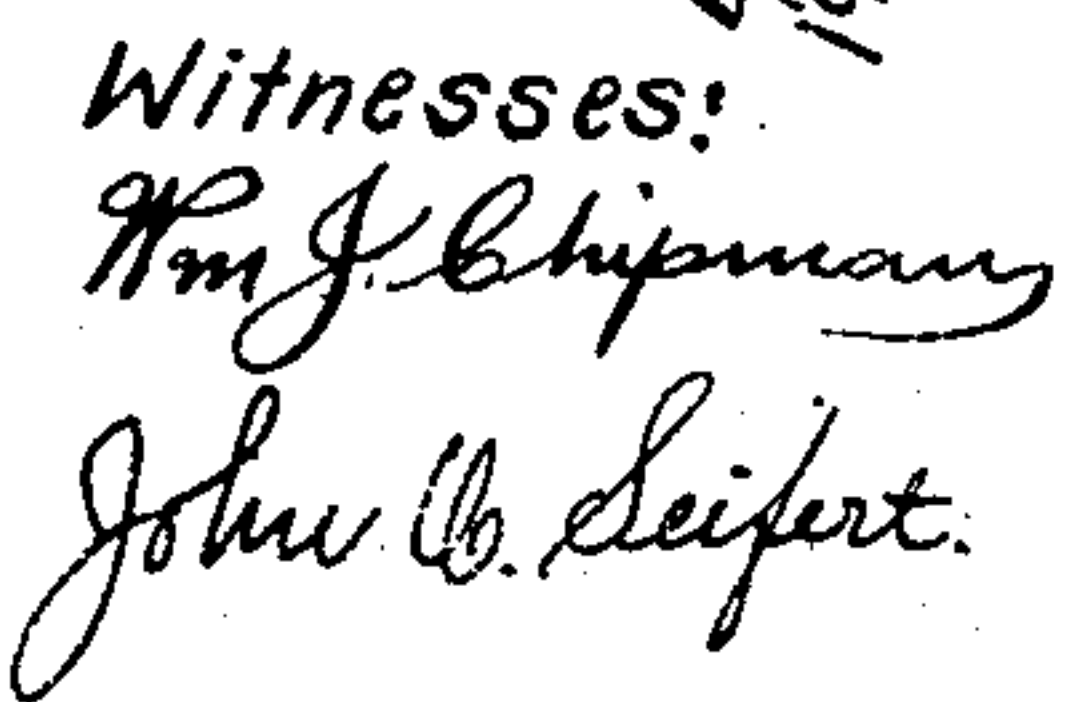 Witnesses:
Wm J. Chipman
John Seifert.